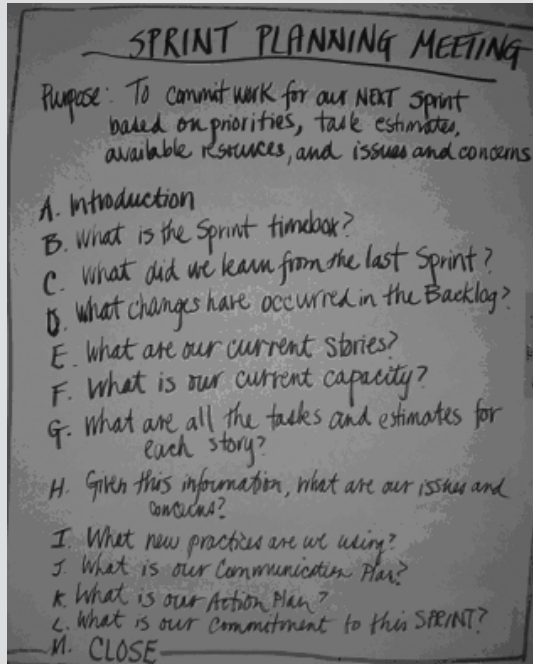 SPRINT PLANNING MEETING
Purpose: To commit work for our NEXT Sprint
based on priorities, task estimates,
available resources, and issues and concerns
A. Introduction
B. What is the Sprint timebox?
C. What did we learn from the last Sprint?
D. What changes have occurred in the Backlog?
E. What are our current stories?
F. What is our current capacity?
G. What are all the tasks and estimates for
each story?
H. Given this information, what are our issues and
concerns?
I. What new practices are we using?
J. What is our Communication Plan?
K. What is our Action Plan?
L. What is our commitment to this SPRINT?
M. CLOSE